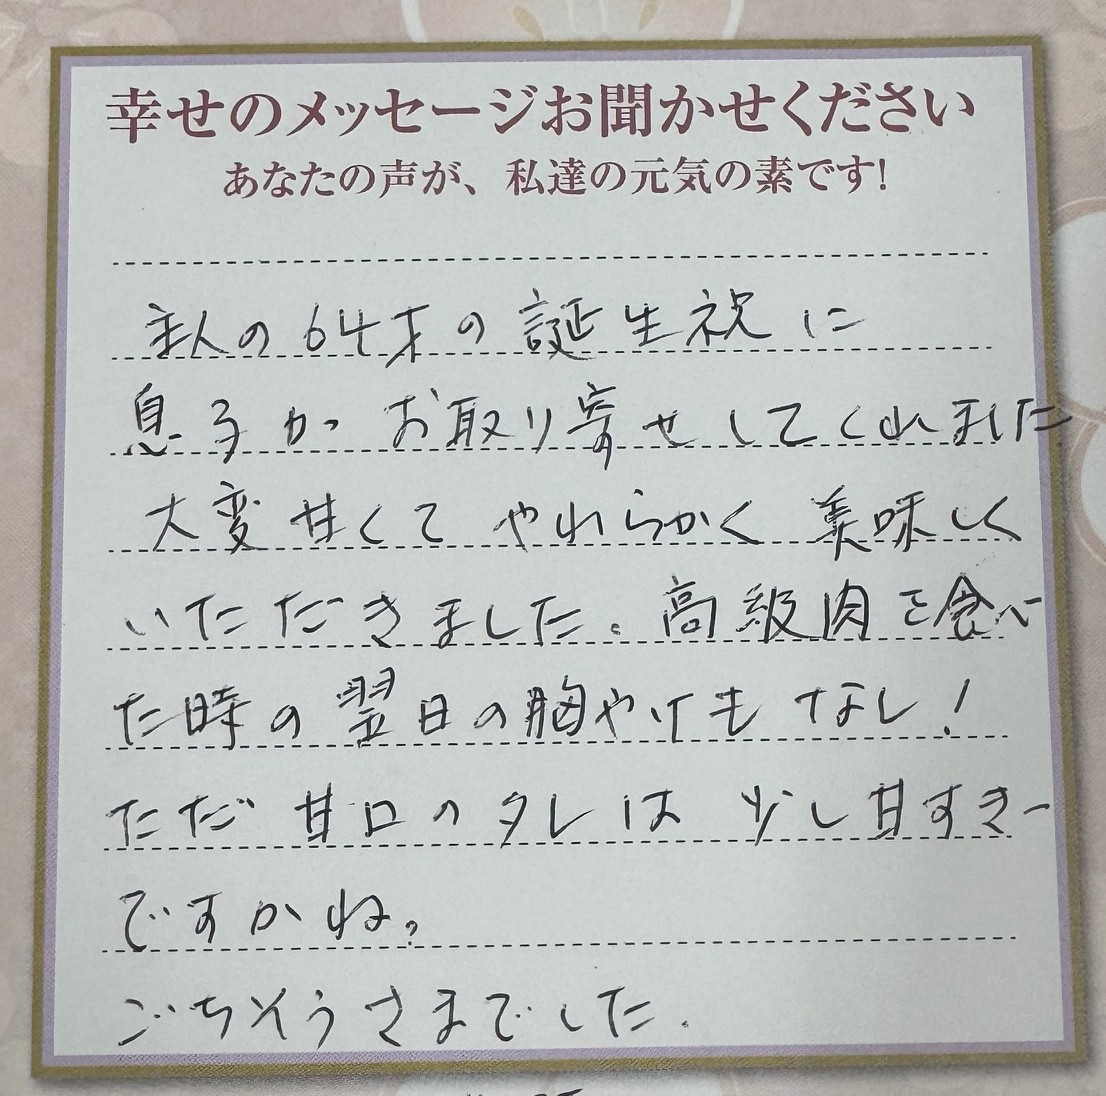 幸せのメッセージお聞かせください
あなたの声が、私達の元気の素です!
主人の64才の誕生祝に
息子がお取り寄せしてくれました
大変甘くてやわらかく美味しく
いただきました。高級肉を食べ
た時の翌日の胸やけもなし!
ただ甘口のタレは少し甘すぎ
ですかね。
ごちそうさまでした.